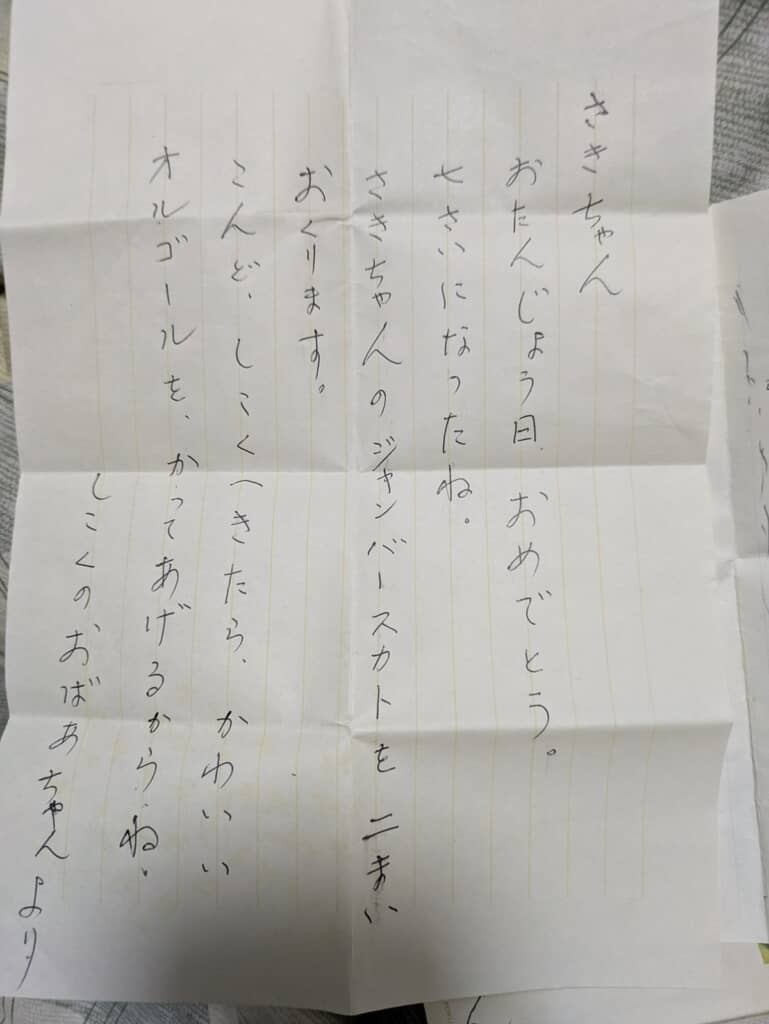 さきちゃん
おたんじょう日 おめでとう。
七さいになったね。
さきちゃんのジャンバースカトを二まい
おくります。
こんど、しこくへきたら、かわいい
オルゴールを、かってあげるからね。
しこくのおばあちゃんより